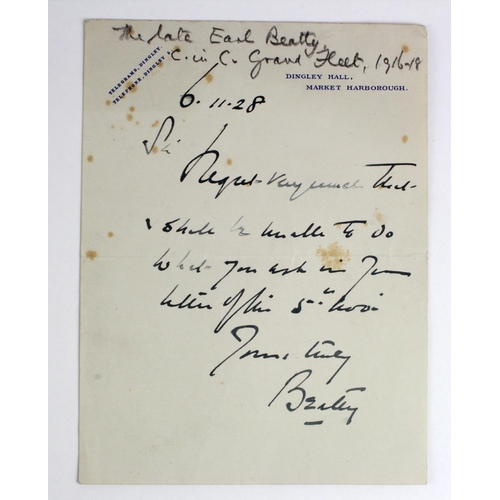 The late Earl Beatty,
C. in C. Grand Fleet, 1916-18
TELEGRAMS, DINGLEY.
TELEPHONE, DINGLEY
DINGLEY HALL,
MARKET HARBOROUGH.
6.11.28
Sir
I regret very much that
I shall be unable to do
what you ask in your
letter of the 5th Nov.
Yours truly
Beatty